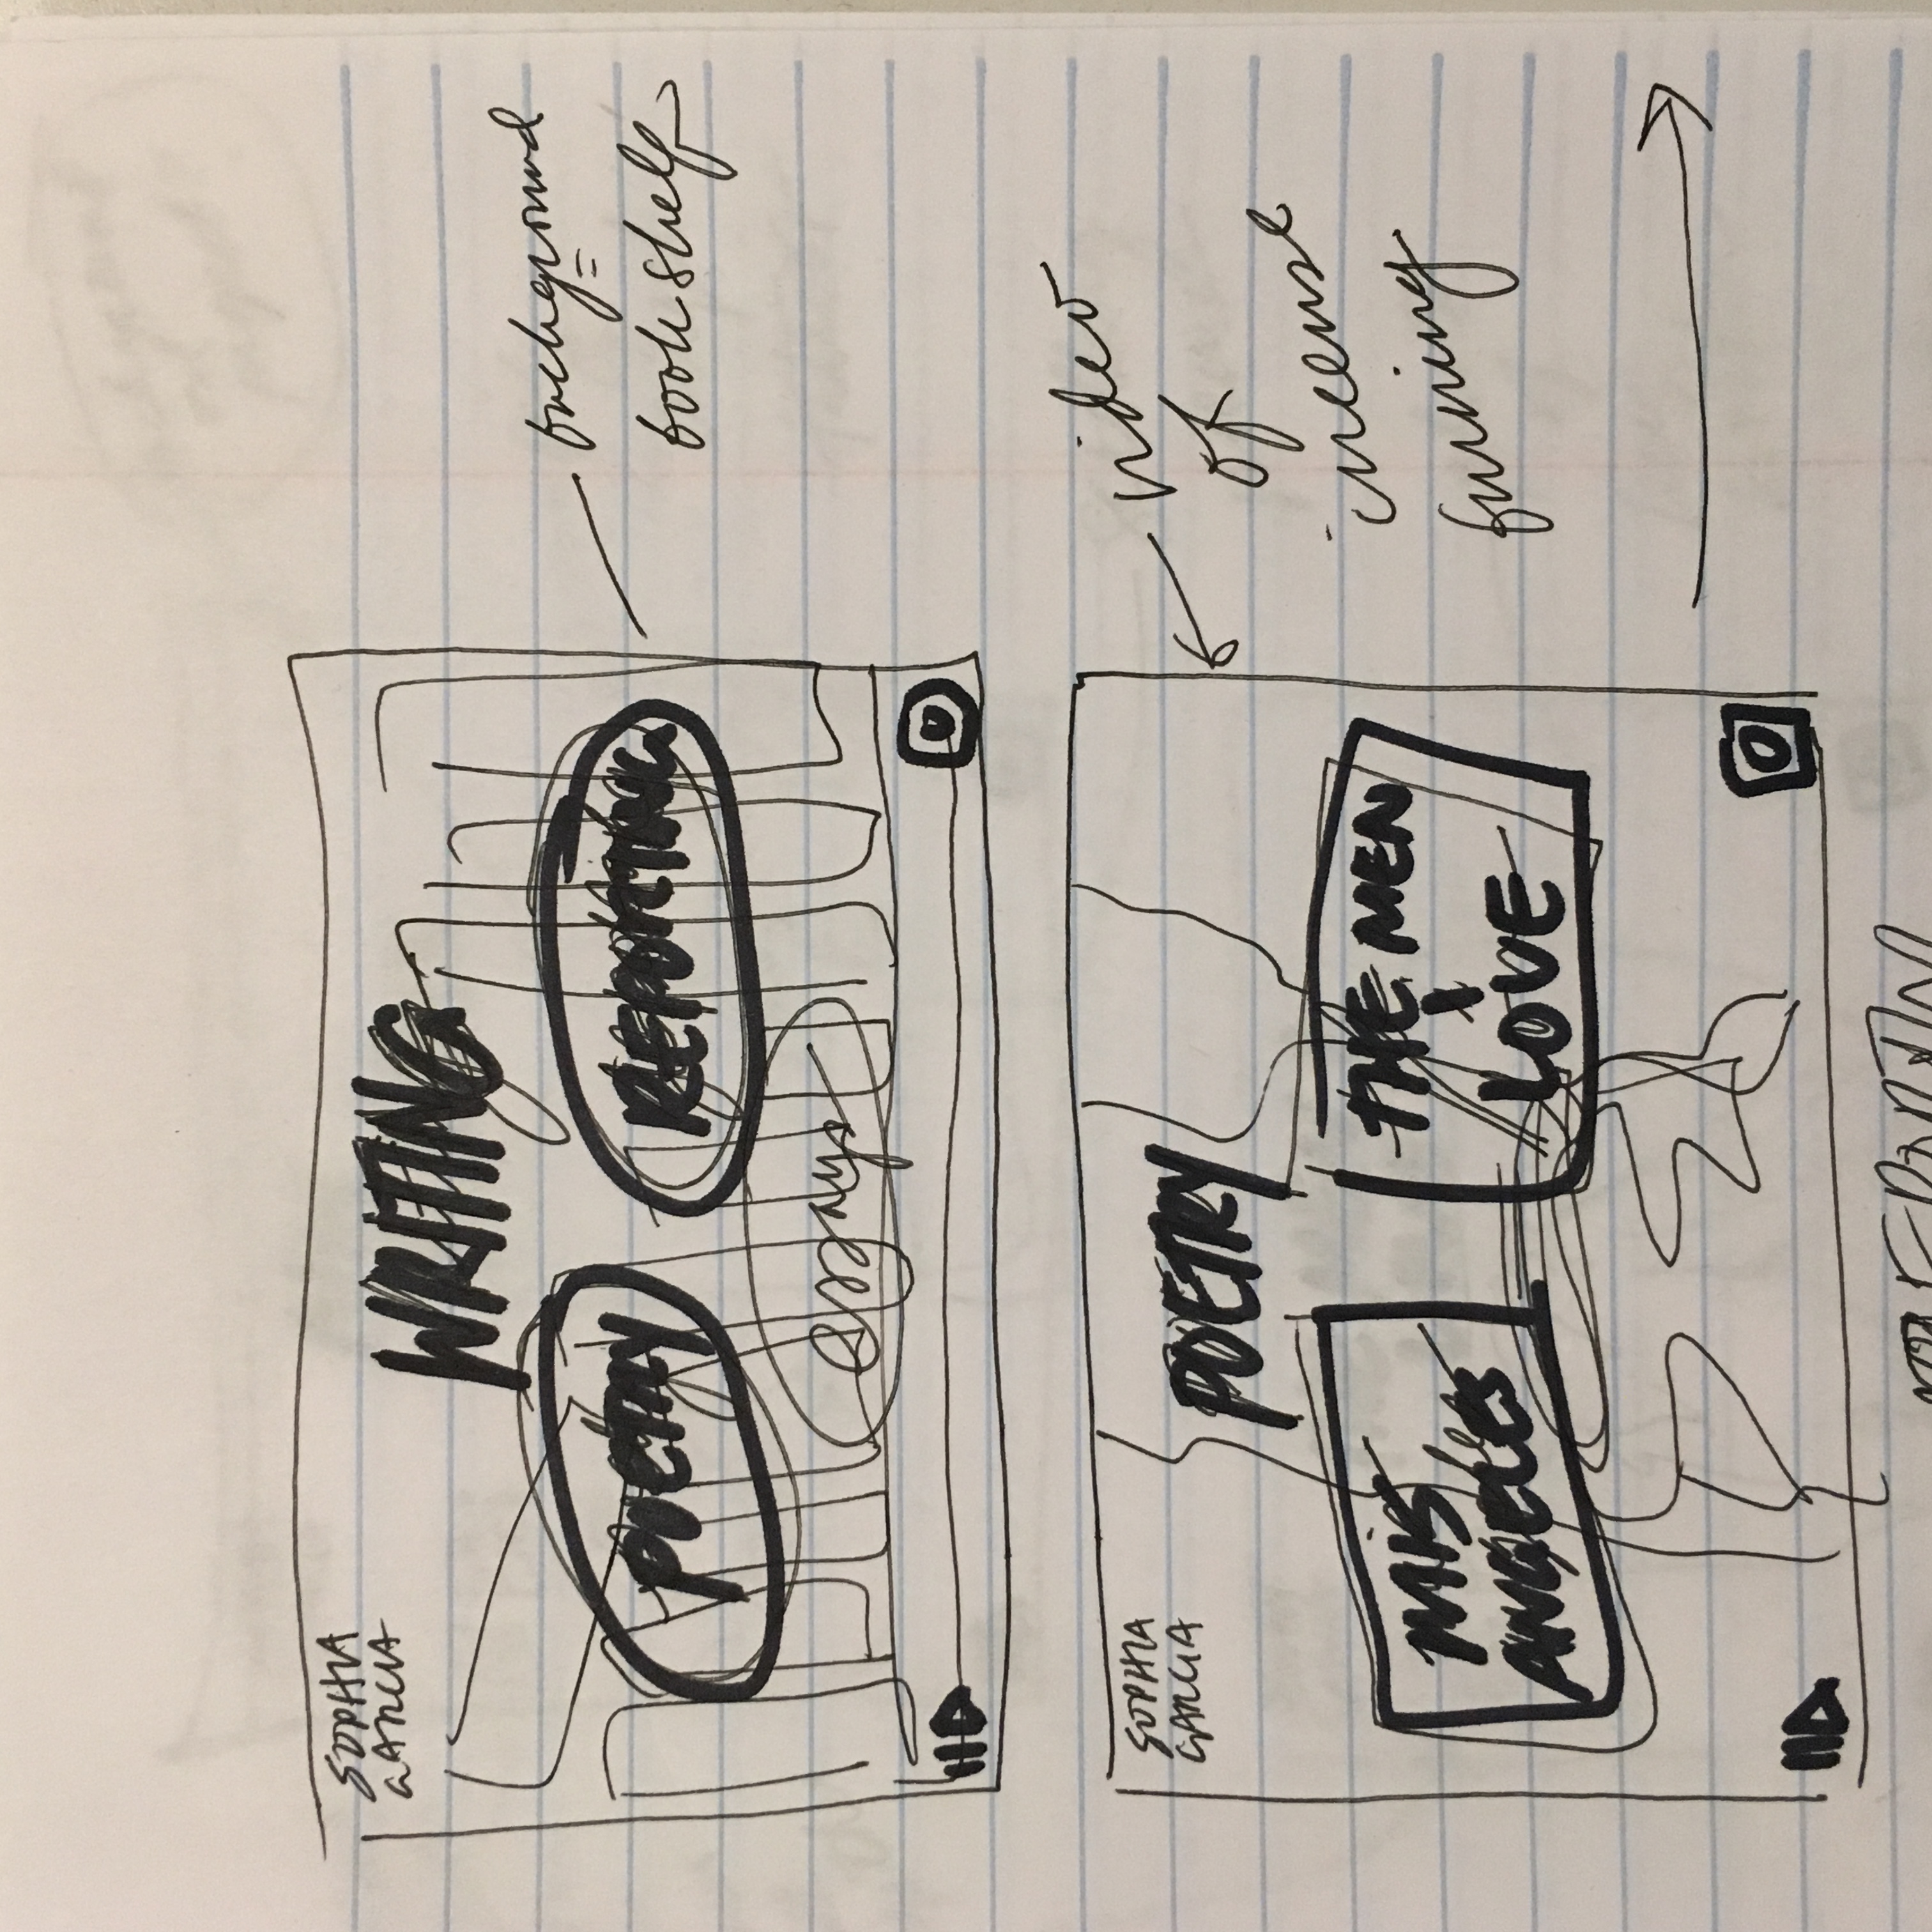 SOPHIA
GARCIA
WRITING
POETRY
REPORTING
essays
background
=
bookshelf
SOPHIA
GARCIA
POETRY
MIS
ANGELES
THE MEN
I
LOVE
video
of
incense
burning